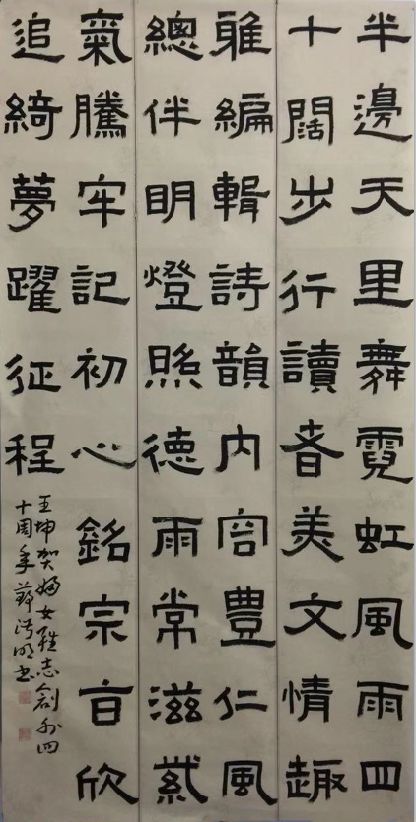 半邊天里舞霓虹風雨四
十闊步行讀者美文情趣
雅編輯詩韻内容豐仁風
總伴明燈照德雨常滋紫
氣騰牢記初心銘宗旨欣
追綺夢躍征程
王坤賀婦女雜志創刊四
十周年薛明书